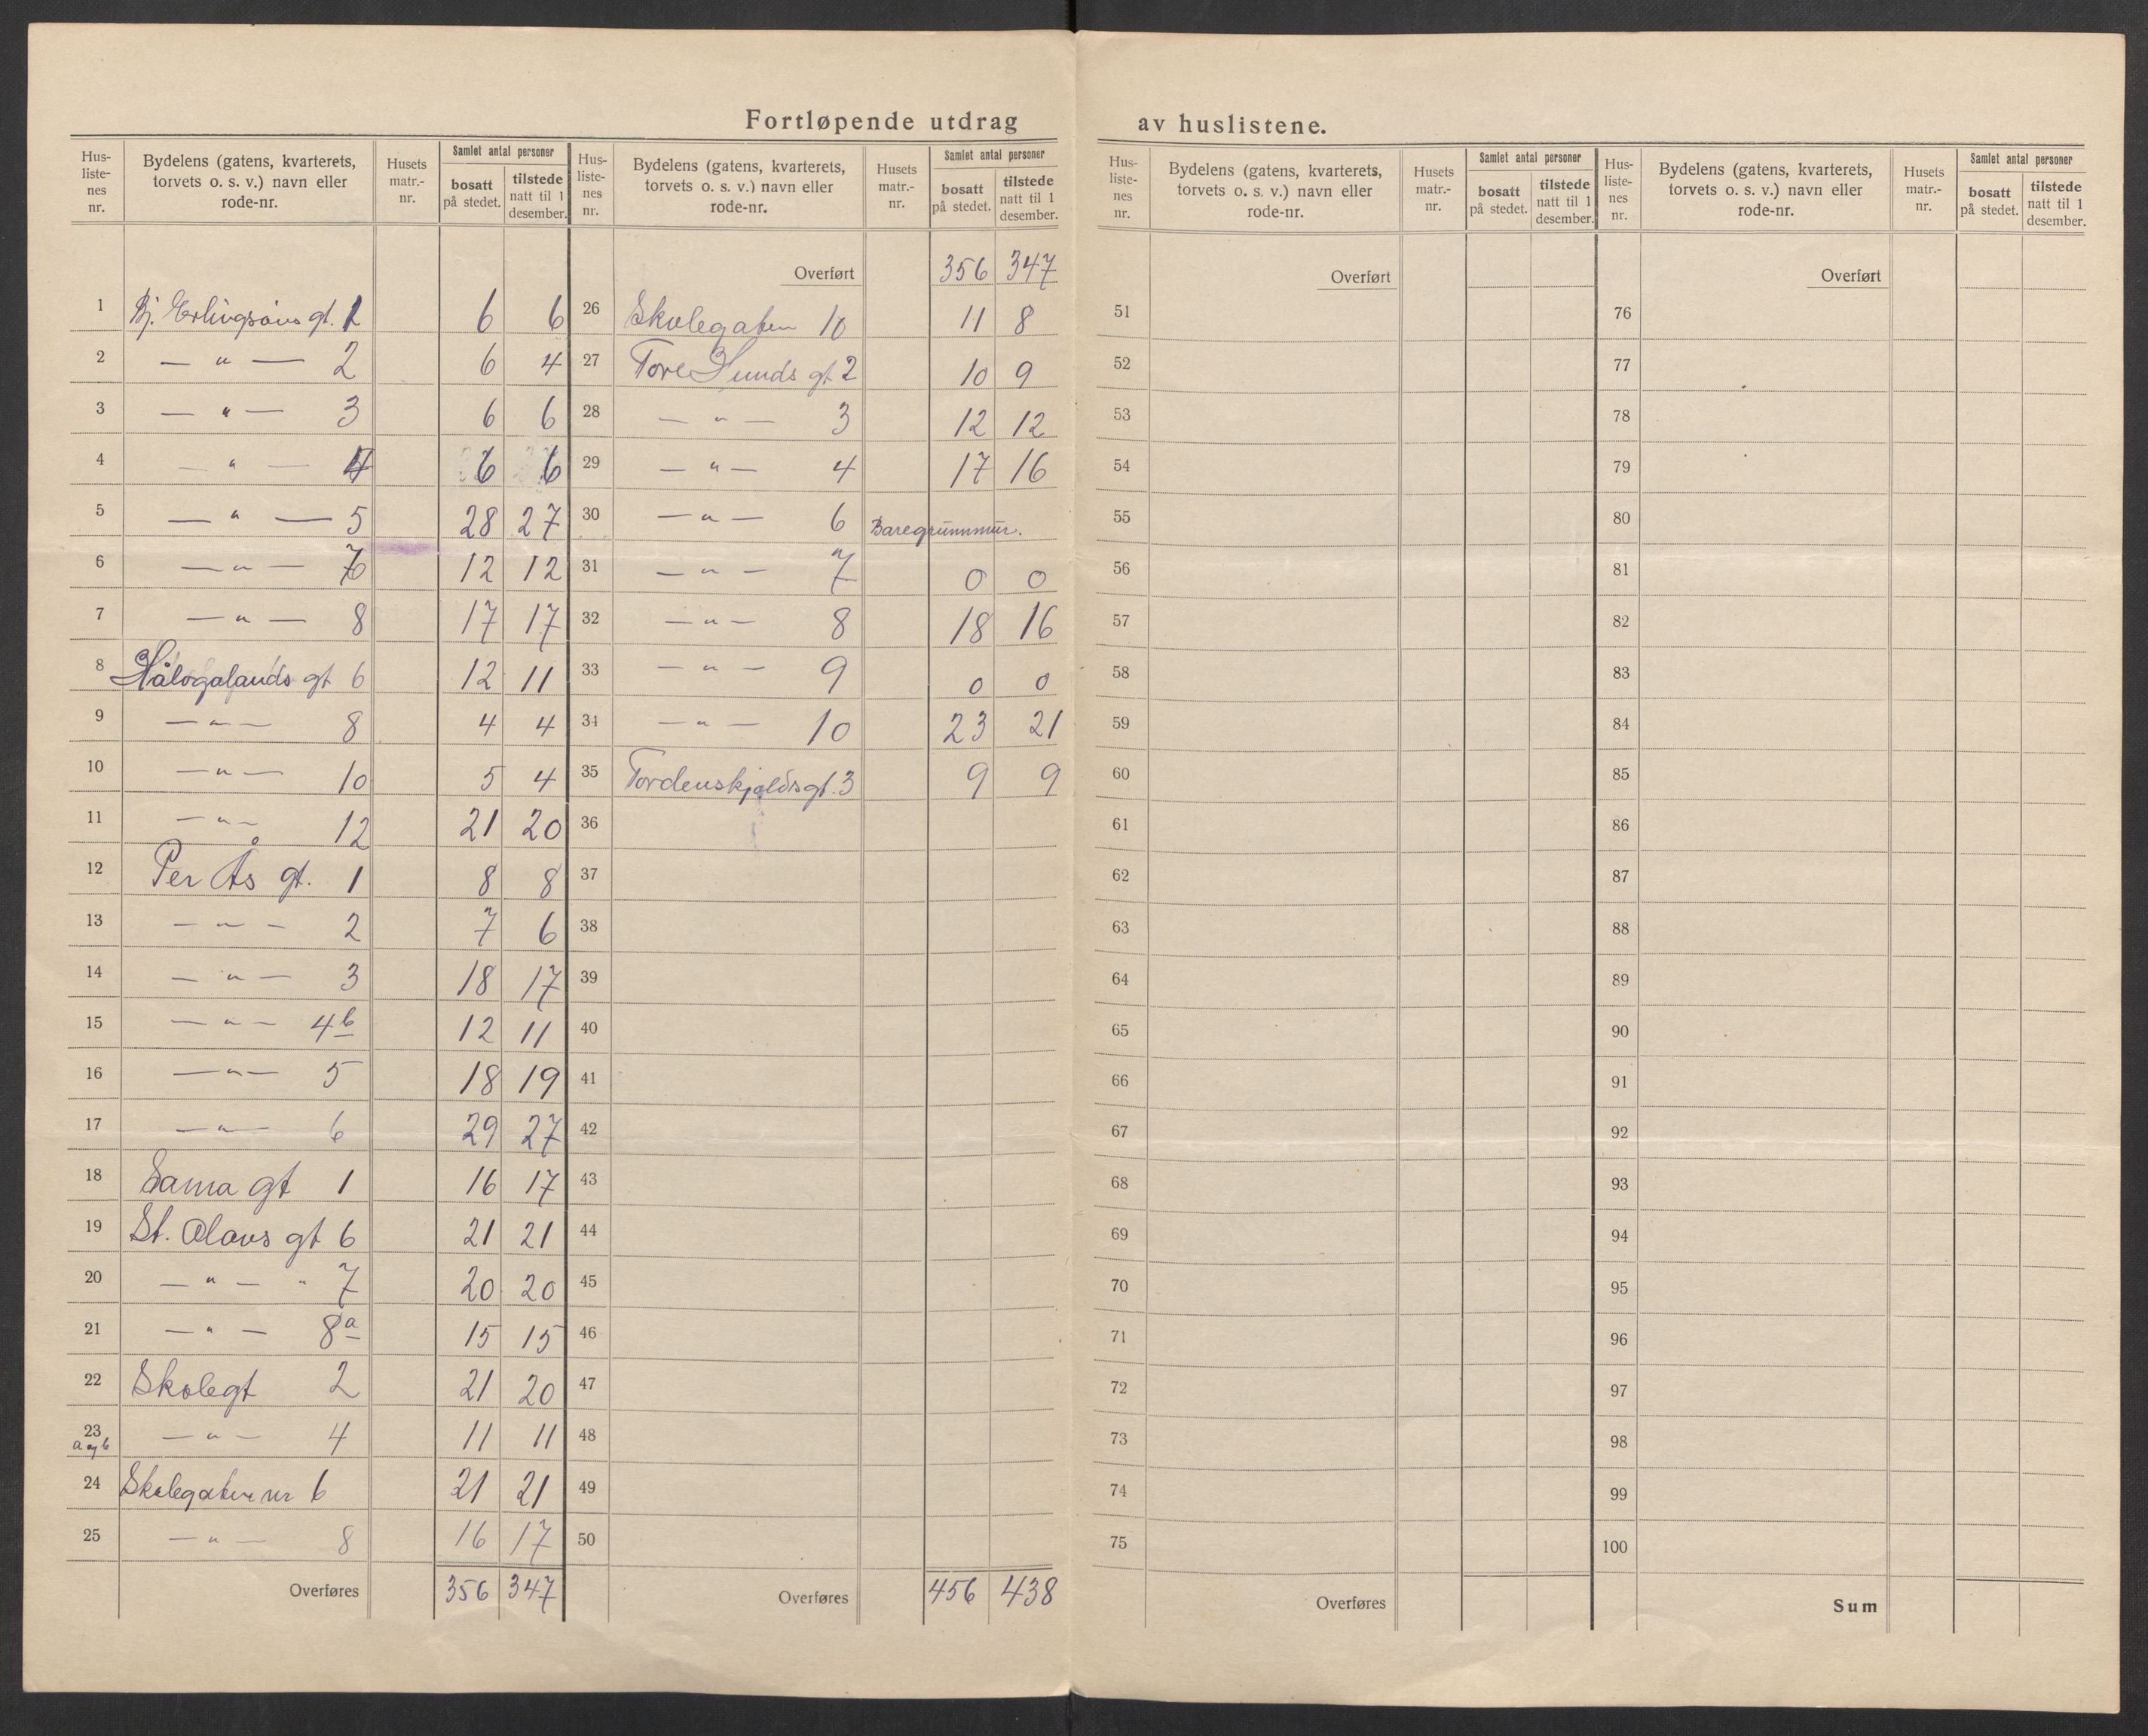 Fortløpende utdrag av huslistene.
Hus-listenes nr. | Bydelens (gatens, kvarterets, torvets o. s. v.) navn eller rode-nr. | Husets matr.-nr. | Samlet antal personer bosatt på stedet. | tilstede natt til 1 desember.
1 Bj. Erlingsøns gt. 1 6 6
2 — " — 2 6 4
3 — " — 3 6 6
4 — " — 4 6 6
5 — " — 5 28 27
6 — " — 7 12 12
7 — " — 8 17 17
8 Hålogalands gt 6 12 11
9 — " — 8 4 4
10 — " — 10 5 4
11 — " — 12 21 20
12 Per Ås gt. 1 8 8
13 — " — 2 7 6
14 — " — 3 18 17
15 — " — 4b 12 11
16 — " — 5 18 19
17 — " — 6 29 27
18 Sama gt 1 16 17
19 St. Olavs gt 6 21 21
20 — " — " 7 20 20
21 — " — 8a 15 15
22 Skolegt 2 21 20
23 a og b — " — 4 11 11
24 Skolegaten nr 6 21 21
25 — " — 8 16 17
Overføres 356 347
Hus-listenes nr. | Bydelens (gatens, kvarterets, torvets o. s. v.) navn eller rode-nr. | Husets matr.-nr. | Samlet antal personer bosatt på stedet. | tilstede natt til 1 desember.
Overført 356 347
26 Skolegaten 10 11 8
27 Tore Hunds gt 2 10 9
28 — " — 3 12 12
29 — " — 4 17 16
30 — " — 6 Bare grunnmur.
31 — " — 7 0 0
32 — " — 8 18 16
33 — " — 9 0 0
34 — " — 10 23 21
35 Tordenskjoldsgt. 3 9 9
36
37
38
39
40
41
42
43
44
45
46
47
48
49
50
Overføres 456 438
Hus-listenes nr. | Bydelens (gatens, kvarterets, torvets o. s. v.) navn eller rode-nr. | Husets matr.-nr. | Samlet antal personer bosatt på stedet. | tilstede natt til 1 desember.
Overført
51
52
53
54
55
56
57
58
59
60
61
62
63
64
65
66
67
68
69
70
71
72
73
74
75
Overføres
Hus-listenes nr. | Bydelens (gatens, kvarterets, torvets o. s. v.) navn eller rode-nr. | Husets matr.-nr. | Samlet antal personer bosatt på stedet. | tilstede natt til 1 desember.
Overført
76
77
78
79
80
81
82
83
84
85
86
87
88
89
90
91
92
93
94
95
96
97
98
99
100
Sum